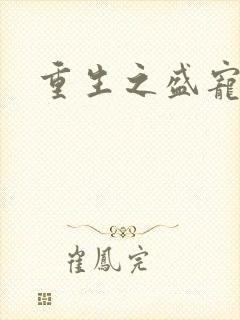 重生之盛寵
崔鳳完